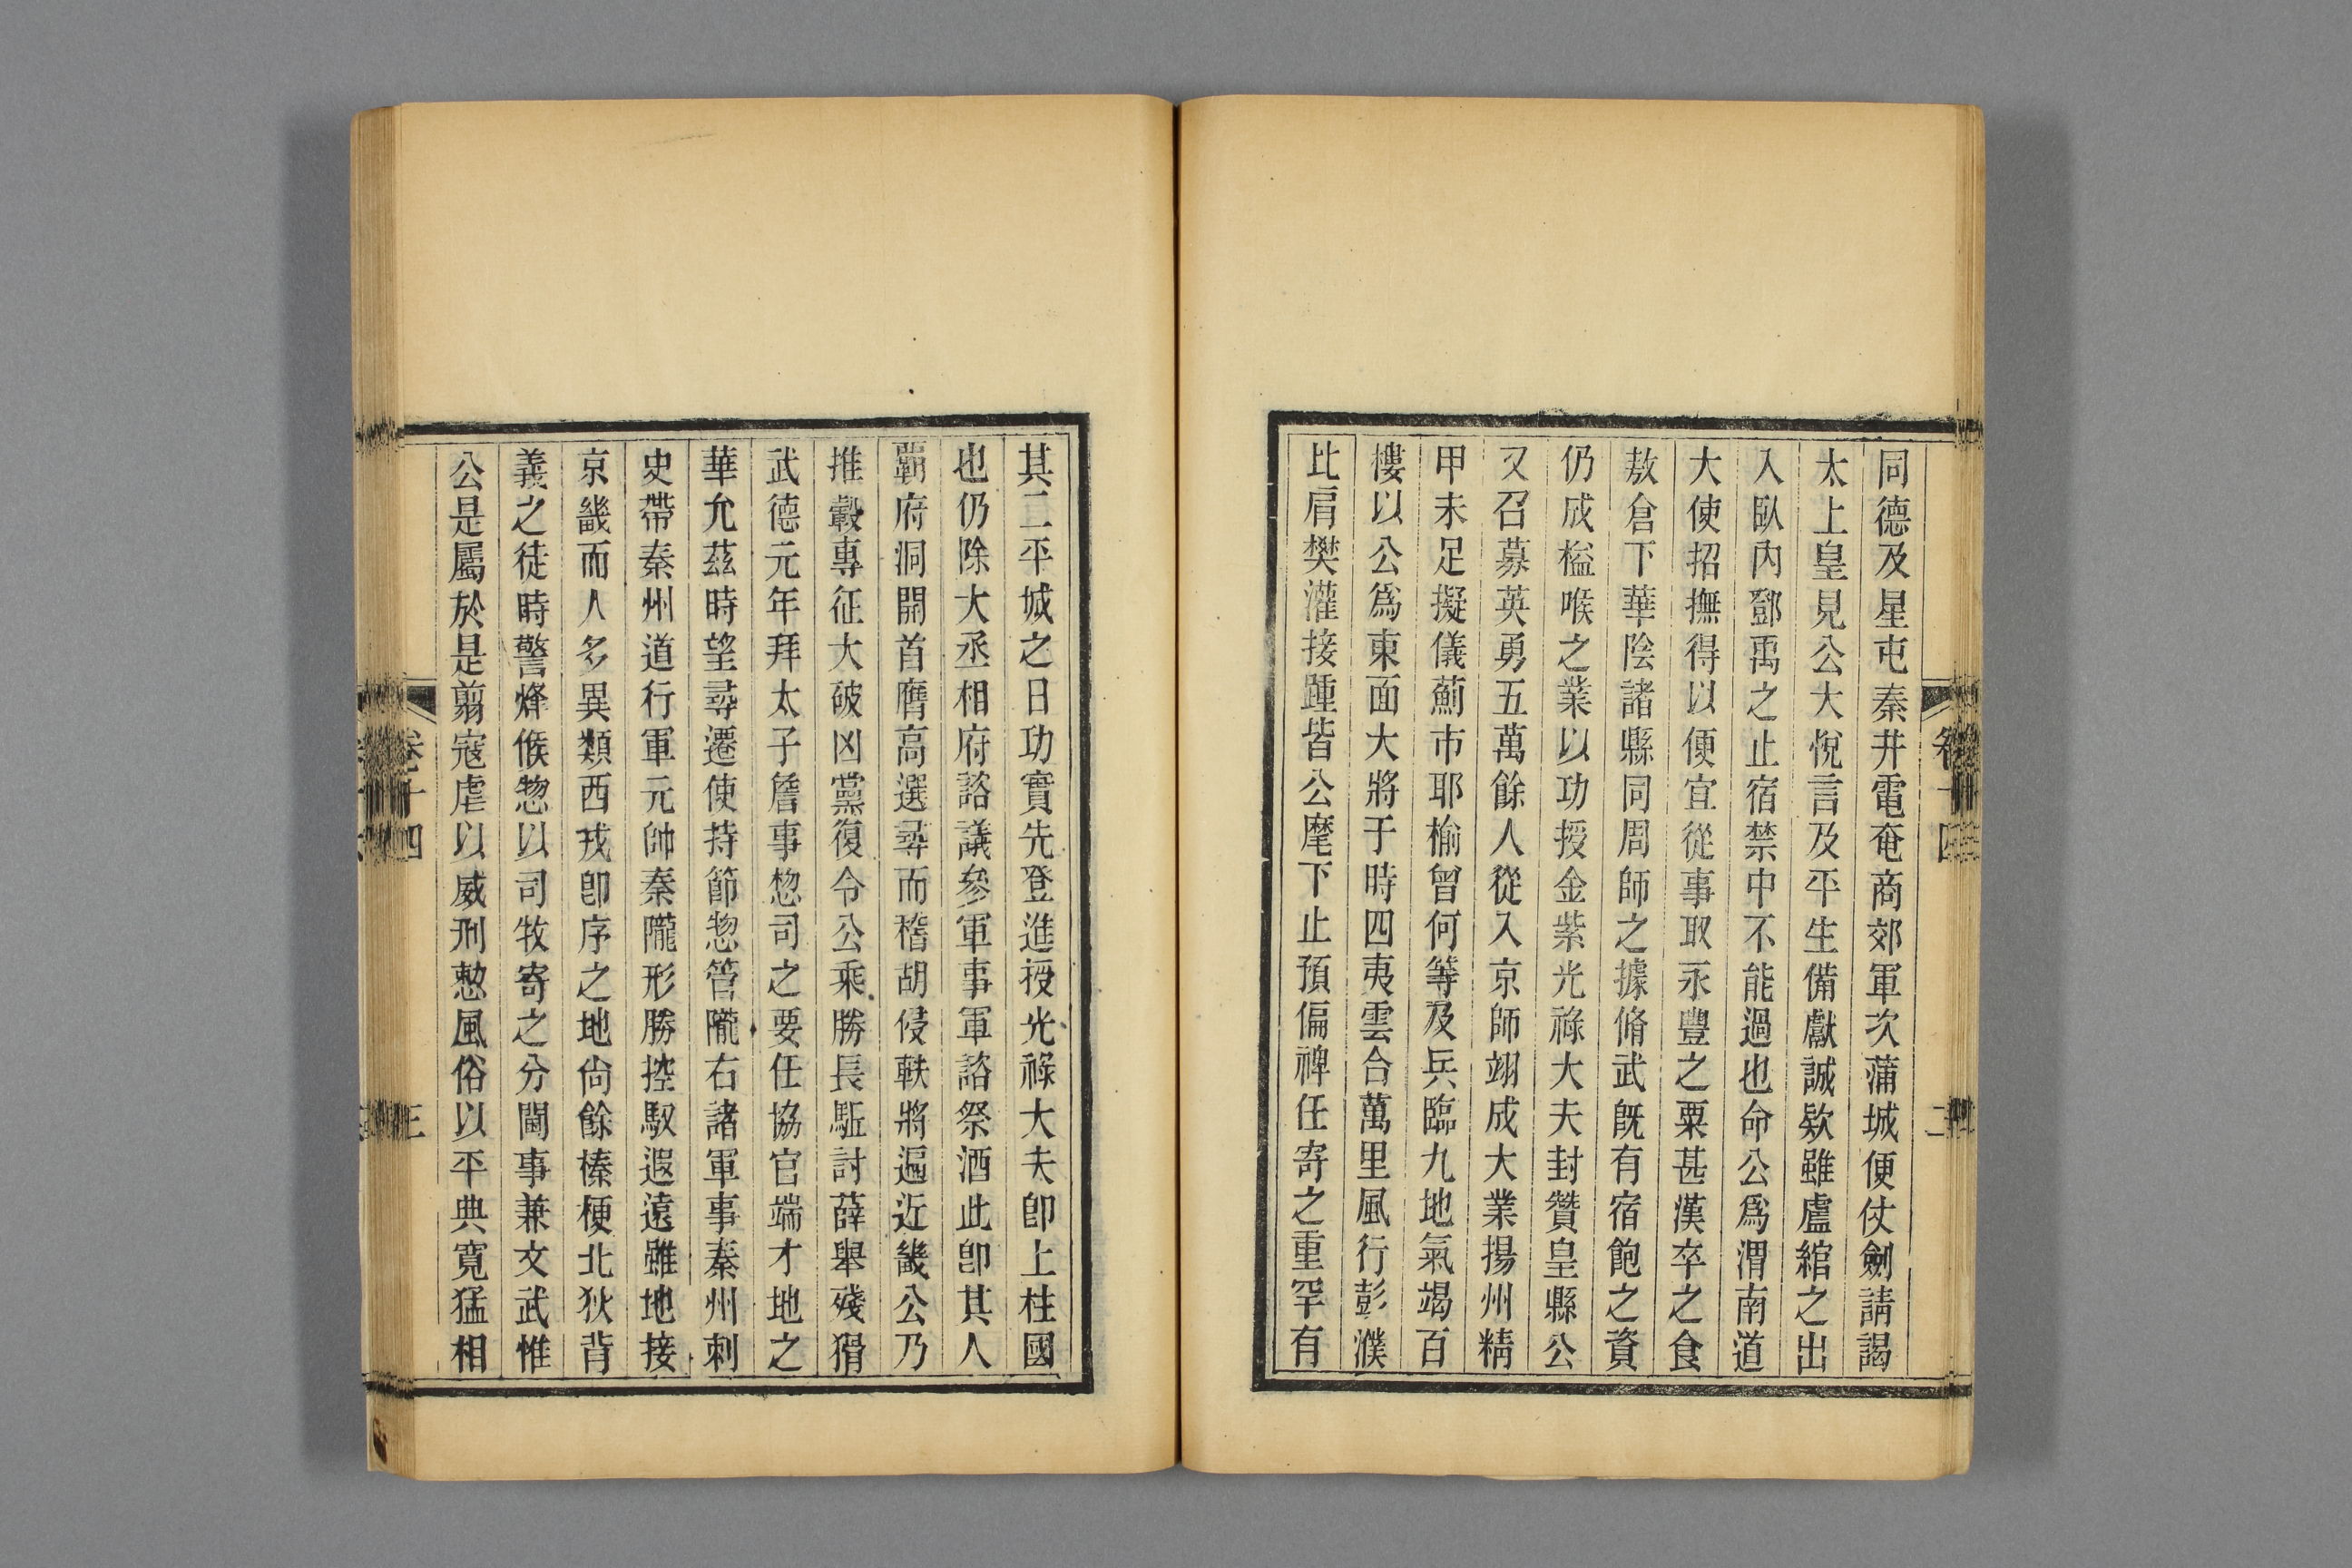 同德及星屯秦井電奄商郊軍次蒲城便仗劒請謁
太上皇見公大悅言及平生備獻誠欵雖盧綰之出
入臥內鄧禹之止宿禁中不能過也命公爲渭南道
大使招撫得以便宜從事取永豐之粟甚漢卒之食
敖倉下華陰諸縣同周師之據脩武旣有宿飽之資
仍成榏喉之業以功授金紫光祿大夫封贊皇縣公
又召募英勇五萬餘人從入京師翊成大業揚州精
甲未足擬儀薊市耶楡曾何等及兵臨九地氣竭百
樓以公爲東面大將于時四夷雲合萬里風行彭濮
比肩樊灌接踵皆公麾下止預偏裨任寄之重罕有
其二平城之日功實先登進授光祿大夫卽上柱國
也仍除大丞相府諮議參軍事軍諮祭酒此卽其人
霸府洞開首膺高選尋而稽胡侵軼將逼近畿公乃
推轂專征大破凶黨復令公乘勝長駈討薛舉殘猾
武德元年拜太子詹事惣司之要任協官端才地之
華允茲時望尋遷使持節惣管隴右諸軍事秦州刺
史帶秦州道行軍元帥秦隴形勝控馭遐遠雖地接
京畿而人多異類西戎卽序之地尙餘榛梗北狄背
義之徒時警烽候惣以司牧寄之分閫事兼文武惟
公是屬於是翦寇虐以威刑懃風俗以平典寬猛相
卷十四
三
卷十四
二